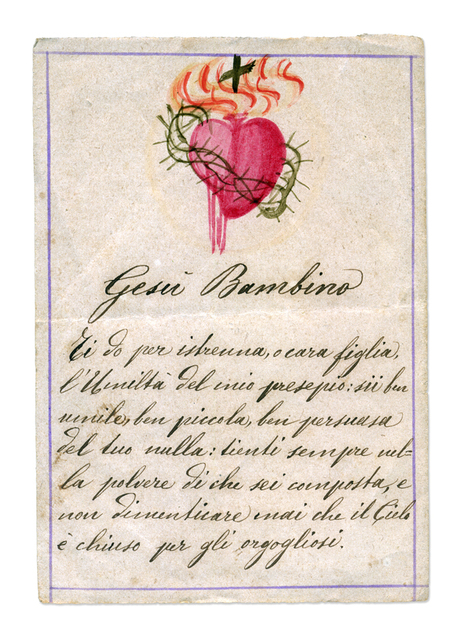 Gesù Bambino
Ti do per istrenna, o cara figlia,
l'Umiltà del mio presepio: sii ben
umile, ben piccola, ben persuasa
del tuo nulla: tienti sempre nel-
la polvere di che sei composta, e
non dimenticare mai che il Cielo
è chiuso per gli orgogliosi.